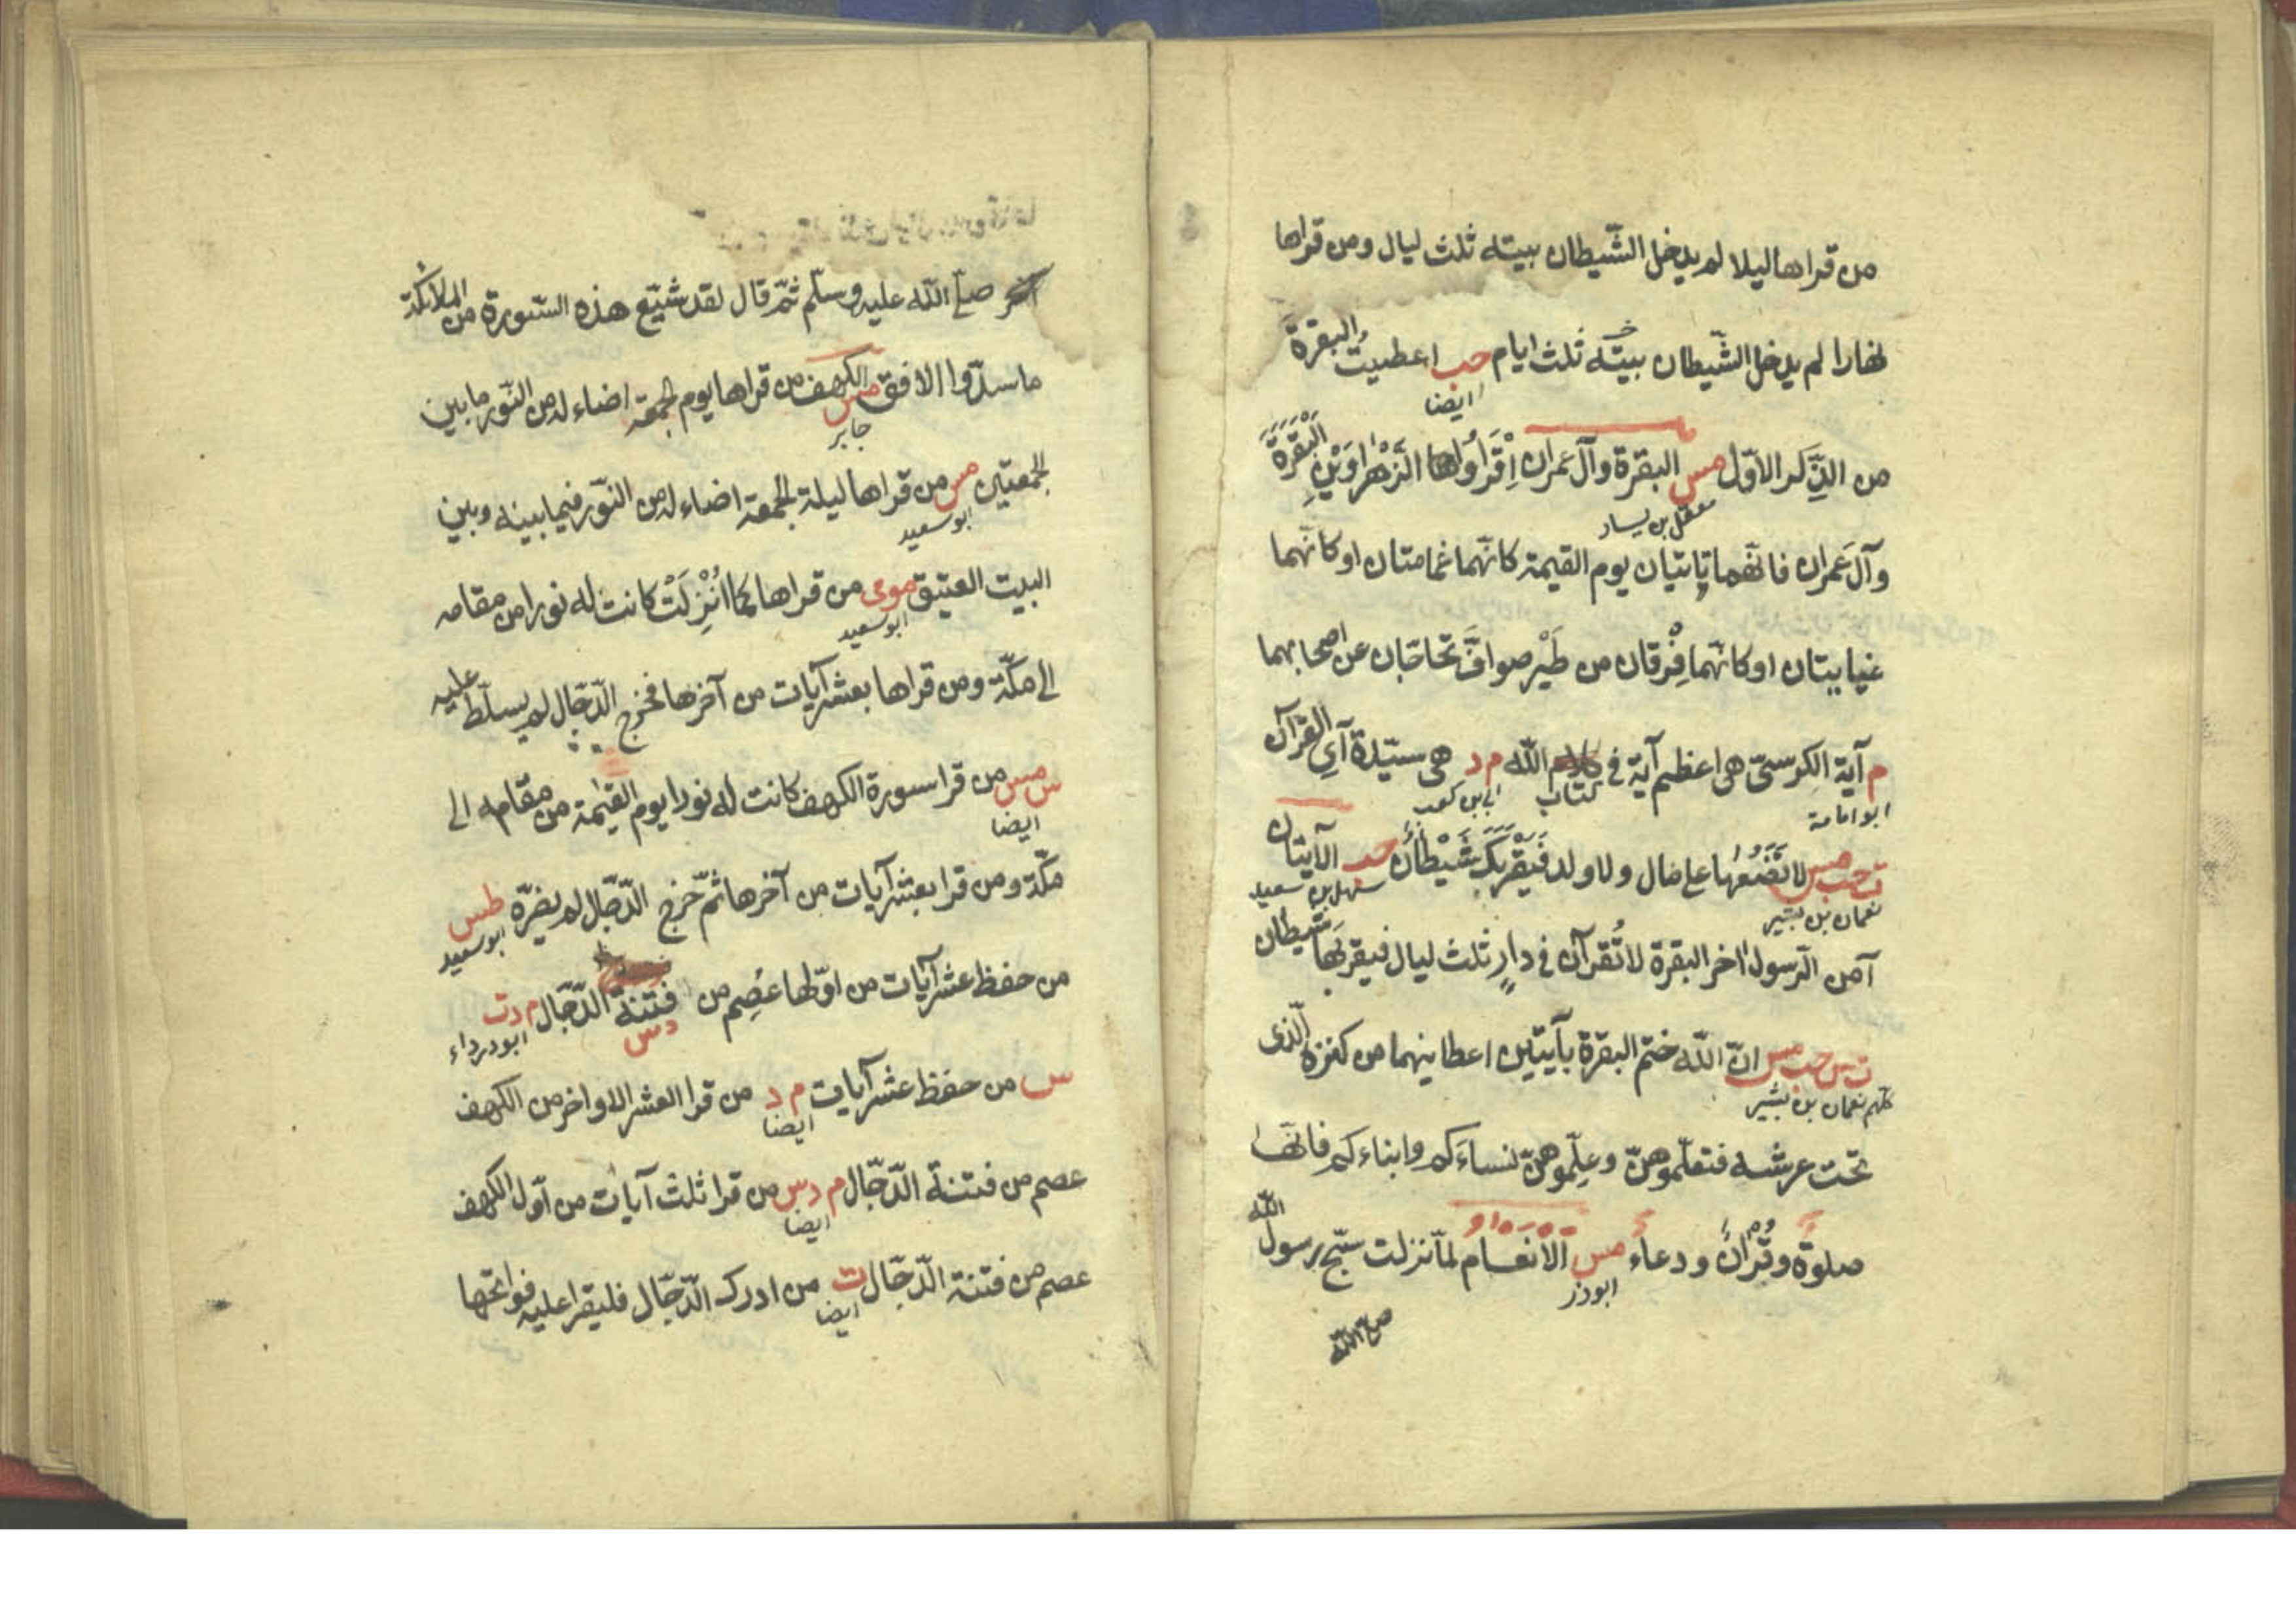 من قراها ليلا لم يدخل الشّيطان بيته ثلث ليال ومن قراها
نهارا لم يدخل الشّيطان بيته ثلث ايام حب اعطيت البقرة
ايضا
من الذّكر الاوّل مس البقرة وآل عمران اِقْرَاُوا الزّهْراوَيْنِ البَقَرَةَ
معقل بن يسار
وآل عمران فانّهما تاتيان يوم القيمة كانّهما غمامتان او كانّهما
غيايتان او كانّهما فِرْقان من طَيْر صوافّ تحاجّان عن اصحابهما
م آية الكرسىّ هى اعظم آية فى كتاب الله م د هى سيّدة آي القرآن
ابو امامة ابى بن كعب
ت حب مس لا تضعها على مال ولا ولد فيقربك شيطان حب الآيتان
نعمان بن بشير سهل بن سعيد
آمن الرّسول اخر البقرة لا تُقرآن فى دارٍ ثلث ليال فيقربها شيطان
ت س حب مس انّ الله ختم البقرة بآيتين اعطانيهما من كنزه الّذى
كلهم نعمان بن بشير
تحت عرشه فتعلّموهنّ وعلّموهنّ نساءكم وابناءكم فانّها
صلوة وقرآن ودعاء مس الانعام لمّا نزلت سبّح رسول الله
ابوذر
صلى الله
صلى الله عليه وسلّم ثمّ قال لقد شيّع هذه السّورة من الملائكة
ما سدّوا الافق مس الكهف من قراها يوم الجمعة اضاء له من النّور ما بين
جابر
الجمعتين مس من قراها ليلة الجمعة اضاء له من النّور فيما بينه وبين
ابو سعيد
البيت العتيق موى من قراها كما اُنْزِلَتْ كانت له نورا من مقامه
ابو سعيد
الى مكّة ومن قراها بعشر آيات من آخرها فخرج الدّجّال لم يسلّط عليه
س مس من قرا سورة الكهف كانت له نورا يوم القيمة من مقامه الى
ايضا
مكّة ومن قرا بعشر آيات من آخرها ثمّ خرج الدّجّال لم يضرّه طس
ابو سعيد
من حفظ عشر آيات من اوّلها عُصِم من فتنة الدّجّال م د ت
د س ابو درداء
س من حفظ عشر آيات م د من قرا العشر الاواخر من الكهف
ايضا
عصم من فتنة الدّجّال م د س من قرا ثلث آيات من اوّل الكهف
ايضا
عصم من فتنة الدّجّال ت من ادرك الدّجّال فليقرا عليه فواتحها
ايضا